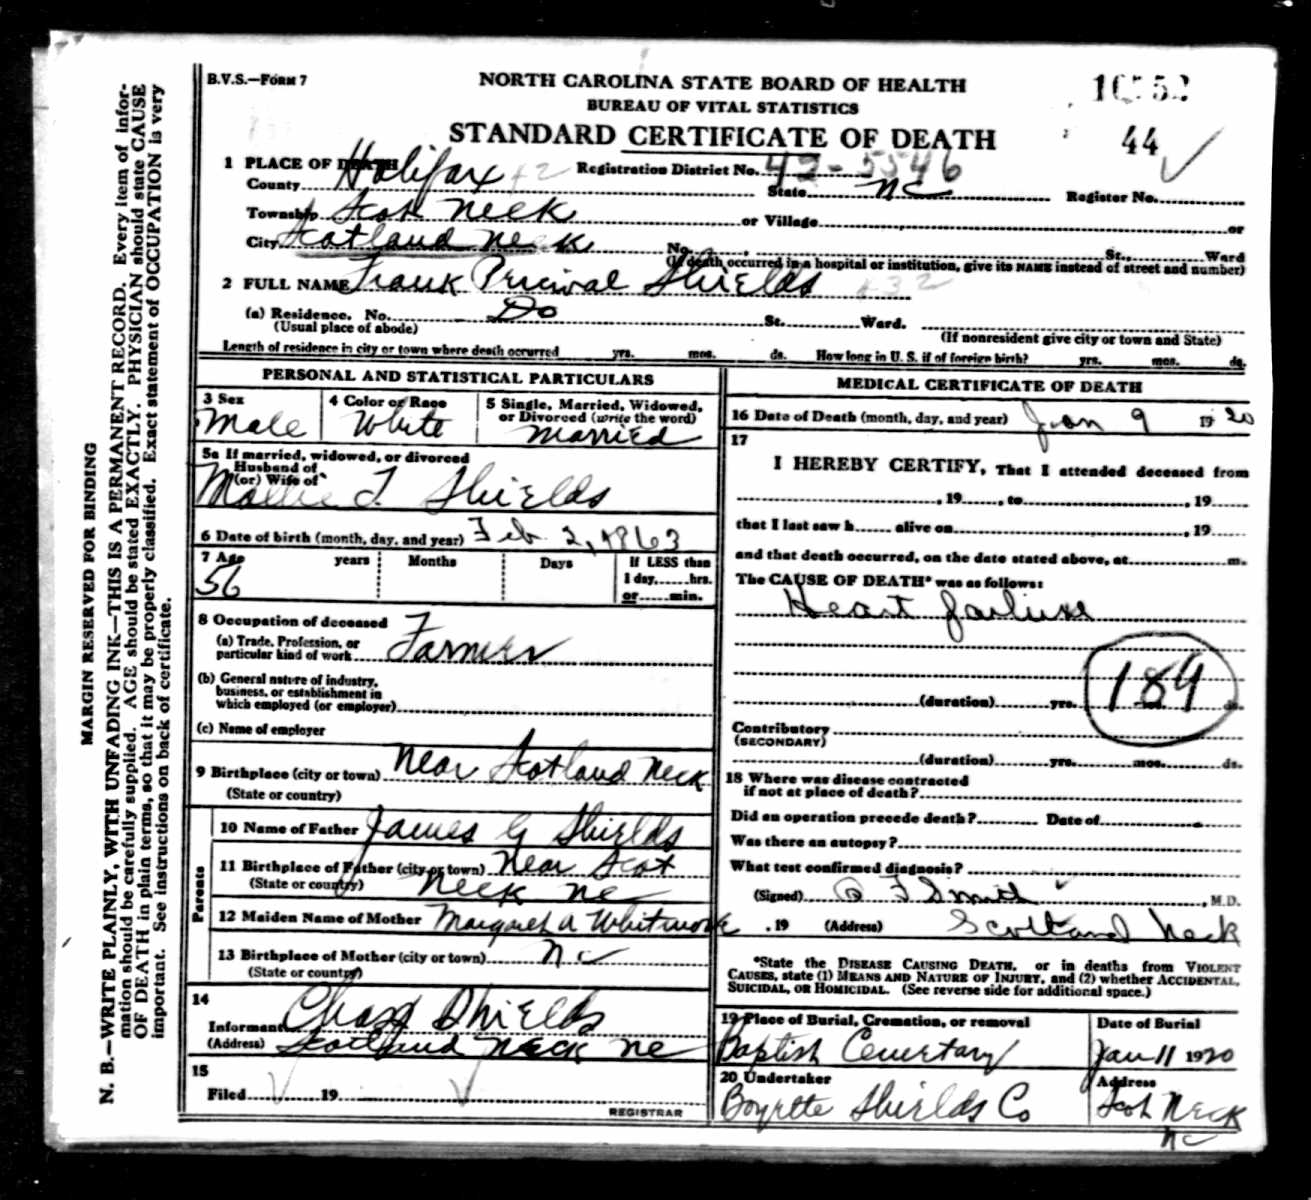 B.V.S.—FORM 7
NORTH CAROLINA STATE BOARD OF HEALTH
BUREAU OF VITAL STATISTICS
STANDARD CERTIFICATE OF DEATH
44
MARGIN RESERVED FOR BINDING
N. B.—WRITE PLAINLY, WITH UNFADING INK—THIS IS A PERMANENT RECORD. Every item of infor-
mation should be carefully supplied. AGE should be stated EXACTLY. PHYSICIAN should state CAUSE
OF DEATH in plain terms, so that it may be properly classified. Exact statement of OCCUPATION is very
important. See instructions on back of certificate.
1 PLACE OF DEATH Registration District No. 42-5546
County Halifax 42 State NC Register No.
Township Scot Neck or Village or
City Scotland Neck No. St., Ward
(If death occurred in a hospital or institution, give its NAME instead of street and number)
2 FULL NAME Frank Pricival Shields 432
(a) Residence. No. Do St. Ward.
(Usual place of abode) (If nonresident give city or town and State)
Length of residence in city or town where death occurred yrs. mos. ds. How long in U. S. if of foreign birth? yrs. mos. ds.
PERSONAL AND STATISTICAL PARTICULARS
3 Sex 4 Color or Race 5 Single, Married, Widowed,
or Divorced (write the word)
Male White Married
5a If married, widowed, or divorced
Husband of
(or) Wife of
Mollie T. Shields
6 Date of birth (month, day, and year) Feb 2, 1863
7 Age years Months Days If LESS than
56 1 day, hrs.
or min.
8 Occupation of deceased
(a) Trade, Profession, or
particular kind of work Farmer
(b) General nature of industry,
business, or establishment in
which employed (or employer)
(c) Name of employer
9 Birthplace (city or town) Near Scotland Neck
(State or country)
Parents
10 Name of Father James G Shields
11 Birthplace of Father (city or town) Near Scot
(State or country) Neck NC
12 Maiden Name of Mother Margaret A Whitmore
13 Birthplace of Mother (city or town) NC
(State or country)
14
Informant Shields
(Address) Scotland Neck NC
15
Filed 19
REGISTRAR
MEDICAL CERTIFICATE OF DEATH
16 Date of Death (month, day, and year) Jan 9 1920
17
I HEREBY CERTIFY, That I attended deceased from
, 19 , to , 19
that I last saw h alive on , 19
and that death occurred, on the date stated above, at m.
The CAUSE OF DEATH* was as follows:
Heart failure
189
(duration) yrs. mos. ds.
Contributory
(SECONDARY)
(duration) yrs. mos. ds.
18 Where was disease contracted
if not at place of death?
Did an operation precede death? Date of
Was there an autopsy?
What test confirmed diagnosis?
(Signed) F Smith , M.D.
, 19 (Address) Scotland Neck
*State the DISEASE CAUSING DEATH, or in deaths from VIOLENT
CAUSES, state (1) MEANS AND NATURE OF INJURY, and (2) whether ACCIDENTAL,
SUICIDAL, OR HOMICIDAL. (See reverse side for additional space.)
19 Place of Burial, Cremation, or removal Date of Burial
Baptist Cemetary Jan 11 1920
20 Undertaker Address
Boyette Shields Co Scot Neck
NC